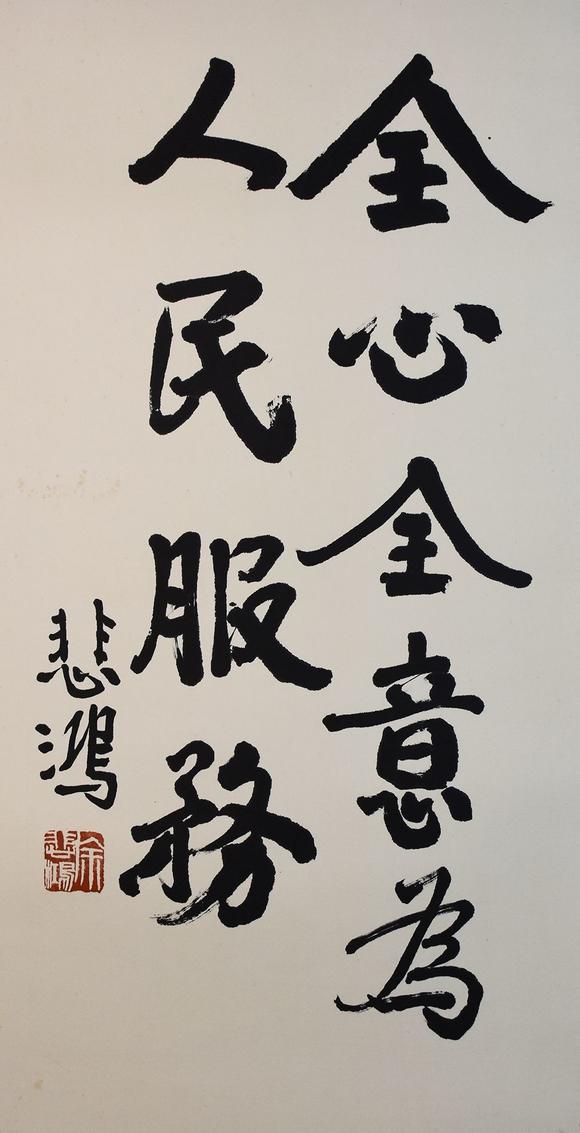 全心全意為
人民服務
悲鴻
徐悲鴻